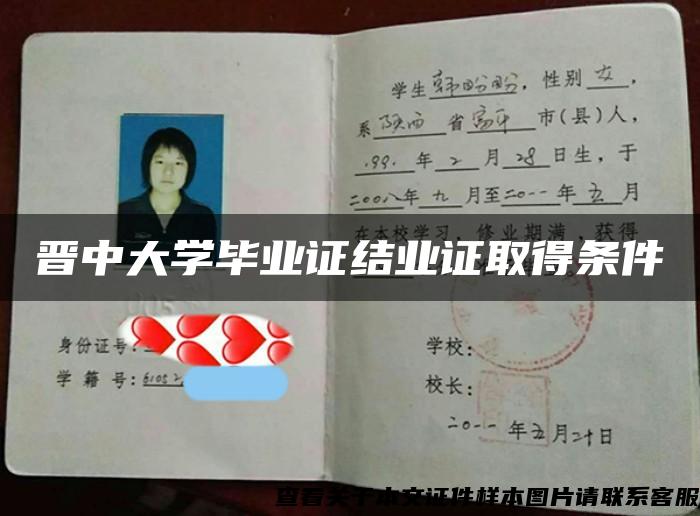 学生韩盼盼,性别女,
系陕西省富平市(县)人,
1991年2月28日生,于
二00八年九月至二0一一年五月
在本校学习,修业期满,获得
晋中大学毕业证结业证取得条件
身份证号:
学籍号:61052
学校:
校长:
二0一一年五月二十日
查看关于本文证件样本图片请联系客服